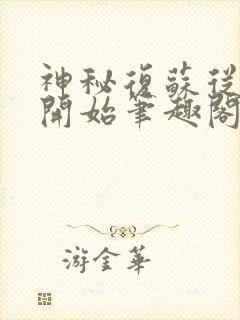 神秘復蘇從
開始筆趣閣
游金華